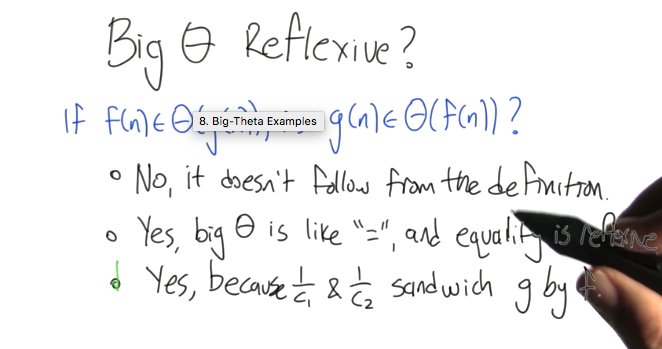 Big Θ Reflexive?
If f(n)∈Θ(g(n)), g(n)∈Θ(f(n))?
8. Big-Theta Examples
No, it doesn't follow from the definition.
Yes, big Θ is like "=", and equality is reflexive
Yes, because 1/c₁ & 1/c₂ sandwich g by f